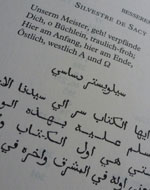 BESSERE
SILVESTRE DE SACY
Unserm Meister, geh! verpfände
Dich, o Büchlein, traulich-froh;
Hier am Anfang, hier am Ende,
Östlich, westlich A und Ω
سيلوستر دساسي
ايها الكتاب سر الي سيدنا
سلم عليه بهذه
هي اول الكتاب
اوله في المشرق واخره في